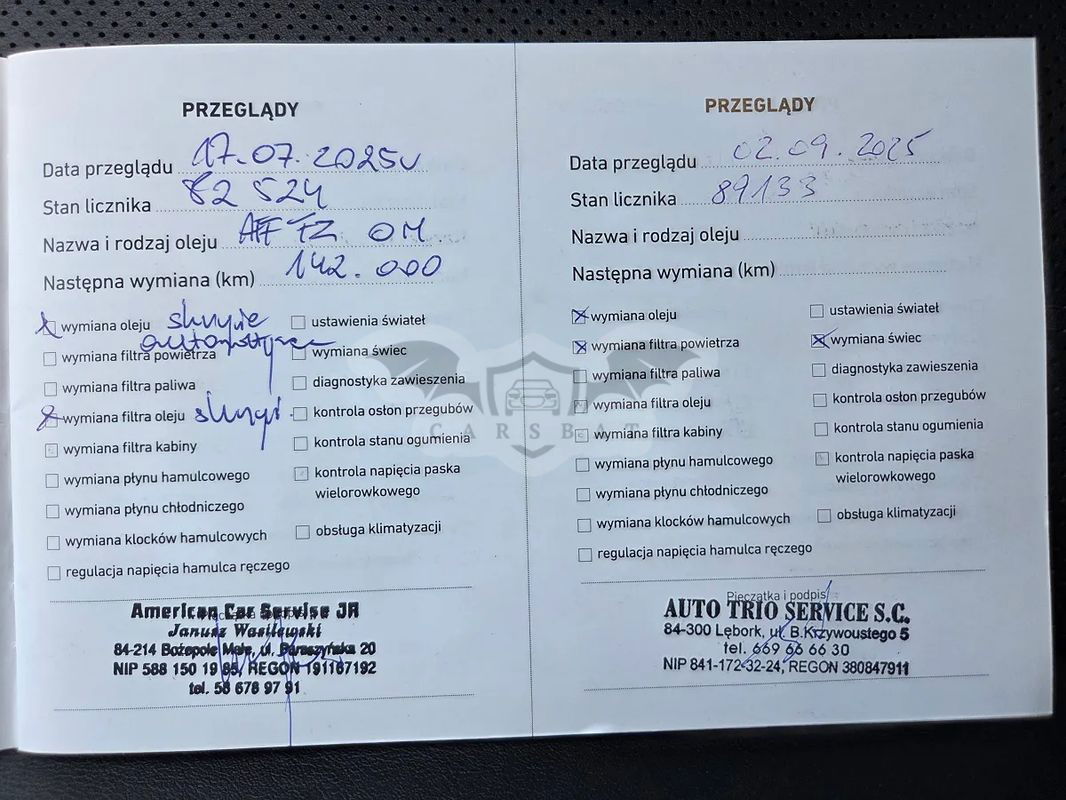 PRZEGLĄDY
Data przeglądu 17.07.2025
Stan licznika 82 524
Nazwa i rodzaj oleju
Następna wymiana (km) 142.000
wymiana oleju
wymiana filtra powietrza
wymiana filtra paliwa
wymiana filtra oleju
wymiana filtra kabiny
wymiana płynu hamulcowego
wymiana płynu chłodniczego
wymiana klocków hamulcowych
regulacja napięcia hamulca ręcznego
ustawienia świateł
wymiana świec
diagnostyka zawieszenia
kontrola osłon przegubów
kontrola stanu ogumienia
kontrola napięcia paska
wielorowkowego
obsługa klimatyzacji
American Car Servise JR
Janusz Wasilewski
84-214 Bożepole Małe, ul. Paraszyńska 20
NIP 588 150 19 85, REGON 191167192
tel. 58 678 97 91
PRZEGLĄDY
Data przeglądu 02.09.2025
Stan licznika 89133
Nazwa i rodzaj oleju
Następna wymiana (km)
wymiana oleju
wymiana filtra powietrza
wymiana filtra paliwa
wymiana filtra oleju
wymiana filtra kabiny
wymiana płynu hamulcowego
wymiana płynu chłodniczego
wymiana klocków hamulcowych
regulacja napięcia hamulca ręczego
ustawienia świateł
wymiana świec
diagnostyka zawieszenia
kontrola osłon przegubów
kontrola stanu ogumienia
kontrola napięcia paska
wielorowkowego
obsługa klimatyzacji
Pieczątka i podpis
AUTO TRIO SERVICE S.C.
84-300 Lębork, ul. B.Krzywoustego 5
tel. 669 66 66 30
NIP 841-172-32-24, REGON 380847911
CARSBAT